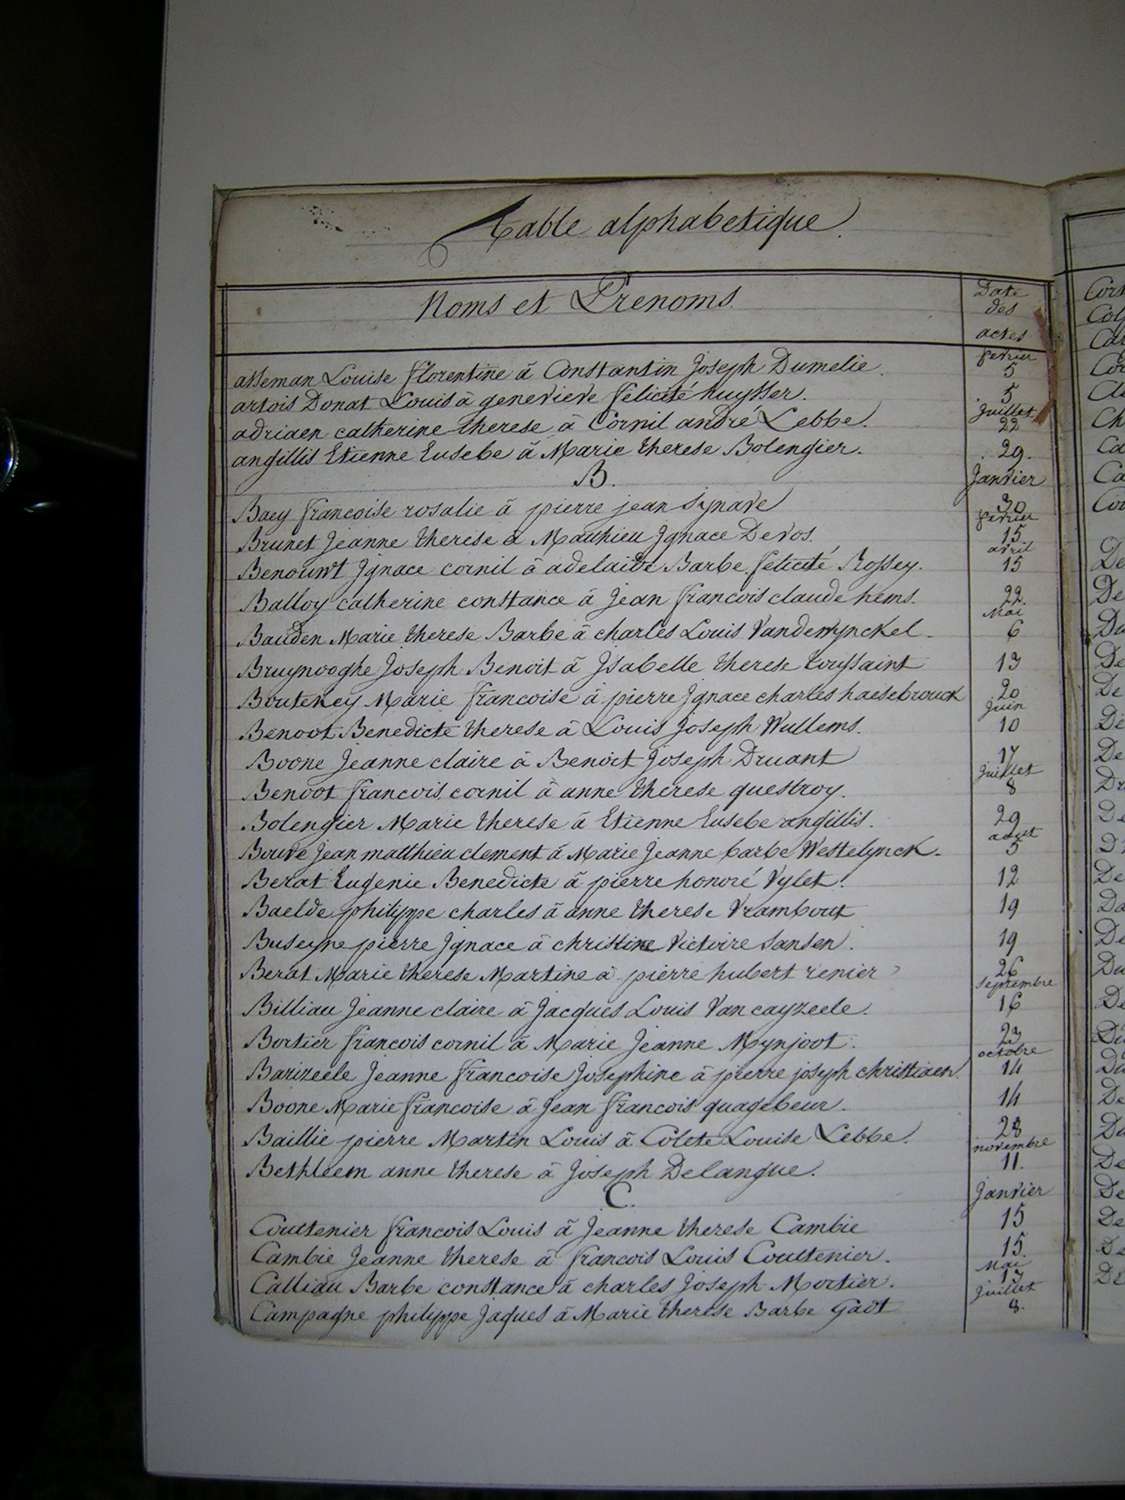 Table alphabetique.
Noms et Prenoms
Date
des
actes
asseman Louise florentine à Constantin Joseph Dumelie.
fevrier
5
artois Donat Louis à genevieve felicité huysser.
5
adriaen catherine therese à Cornil andré Lebbe.
Juillet
22
angillis Etienne Eusebe à Marie therese Bolengier.
29.
B.
Janvier
Baey francoise rosalie à pierre jean Synave
30
Brunet Jeanne therese à Mathieu Ignace Devos.
fevrier
15
Ignace cornil à adelaide Barbe felicité Rossey.
avril
15
Balloy catherine constance à Jean francois claude hems.
22.
Bauden Marie therese Barbe à charles Louis Vandewynckel.
Mai
6
Bruynooghe Joseph Benoit à Isabelle therese toussaint
13
Boutekey Marie francoise à pierre Ignace charles haesebrouck
20
Benoot Benedicte therese à Louis Joseph Wullems.
Juin
10
Boone Jeanne claire à Benoit Joseph Druant
17
Benoot francois cornil à anne therese questroy.
Juillet
8
Bolengier Marie therese à Etienne Eusebe angillis.
29
Bouve Jean matthieu clement à Marie Jeanne barbe Westelynck.
aout
5
Berat Eugenie Benedicte à pierre honoré Vylet.
12
Baelde philippe charles à anne therese Vrambout
19
Buseyne pierre Ignace à christine Victoire Sansen.
19
Berat Marie therese Martine à pierre hubert renier
26
Billiau Jeanne claire à Jacques Louis Vancayzeele.
septembre
16
Bortier francois cornil à Marie Jeanne Mynjoot.
23
Barizeele Jeanne francoise Josephine à pierre joseph christiaen.
octobre
14
Boone Marie francoise à Jean francois quagebeur.
14
Baillie pierre Martin Louis à Colete Louise Lebbe.
28
Bethleem anne therese à Joseph Delangue.
novembre
11.
C.
Janvier
Couttenier francois Louis à Jeanne therese Cambie
15
Cambie Jeanne therese à francois Louis Couttenier.
15.
Calliau Barbe constance à charles Joseph Mortier.
Mai
13
Campagne philippe Jaques à Marie therese Barbe gadt
Juillet
8.